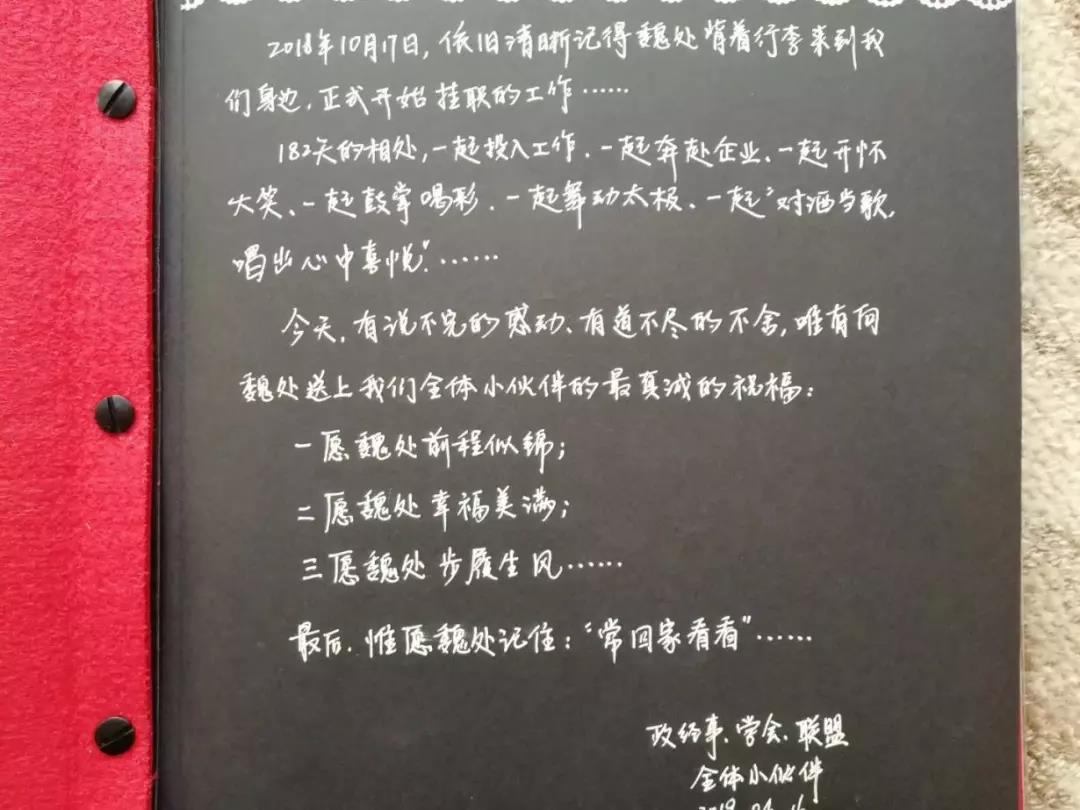 2018年10月17日，依旧清晰记得魏处背着行李来到我
们身边，正式开始挂职的工作……
182天的相处，一起投入工作、一起奔赴企业、一起开怀
大笑、一起鼓掌喝彩、一起舞动太极、一起“对酒当歌，
唱出心中喜悦”……
今天，有说不完的感动、有道不尽的不舍，唯有向
魏处送上我们全体小伙伴的最真诚的祝福：
一愿魏处前程似锦；
二愿魏处幸福美满；
三愿魏处步履生风……
最后，惟愿魏处记住：“常回家看看”……
政经事、学会、联盟
全体小伙伴